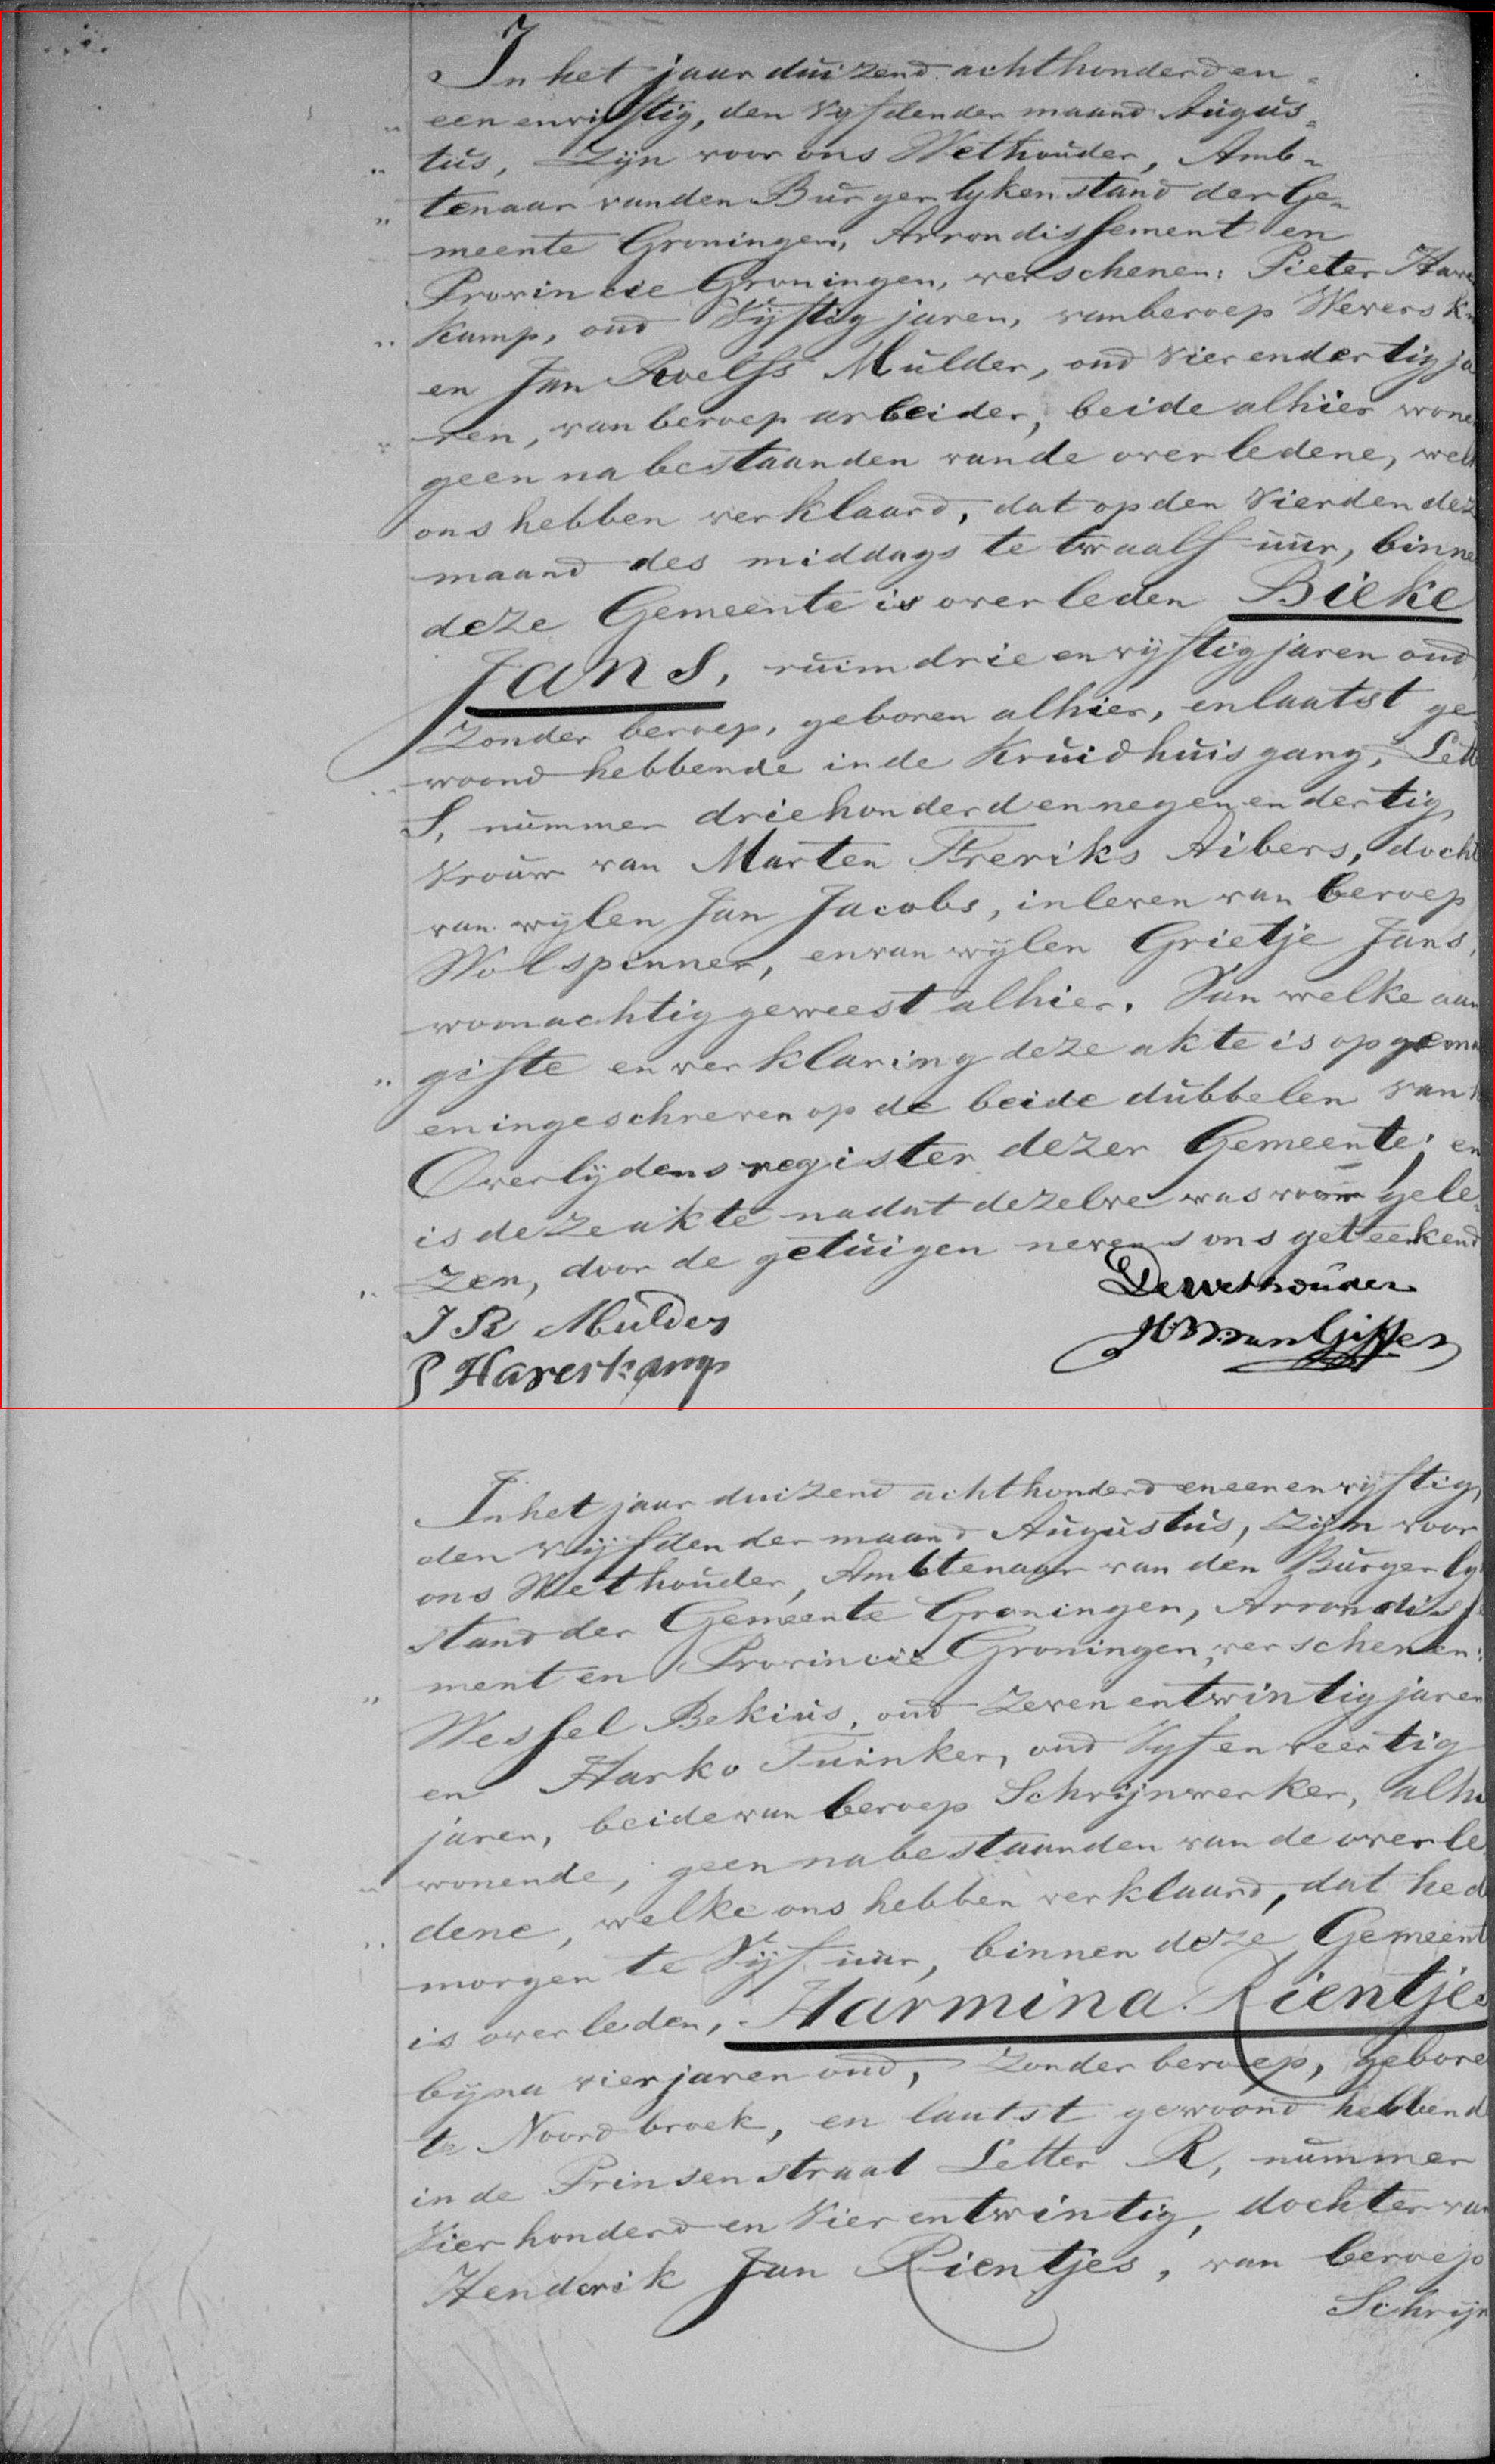 In het jaar duizend achthonderd en
een en vijftig, den Vyfden der maand Augus-
tus, Zijn voor ons Wethouder, Amb-
tenaar van den Burgerlyken stand der Ge-
meente Groningen, Arrondissement en
Provincie Groningen, verschenen: Pieter Have
kamp, oud Vijftig jaren, van beroep Wevers Kn
en Jan Roelfs Mulder, oud Vier en dertig ja
ren, van beroep arbeider, beide alhier wone
geen nabestaanden van de overledene, welk
ons hebben verklaard, dat op den Vierden dez
maand des middags te twaalf uur, binne
deze Gemeente is overleden Bieke
Jans, ruim drie en vijftig jaren oud
Zonder beroep, geboren alhier, en laatst ge
woond hebbende in de Kruidhuisgang, Lett
S, nummer driehonderd en negen en dertig,
Vrouw van Marten Freriks Aibers, docht
van wijlen Jan Jacobs, in leven van beroep
Wolspinner, en van wijlen Grietje Jans,
woonachtig geweest alhier. Van welke aan
gifte en verklaring deze akte is opgema
en ingeschreven op de beide dubbelen van
Overlijdens register dezer Gemeente; en
is deze akte nadat dezelve was voor gele-
zen, door de getuigen nevens ons geteekend
De wethouder
J R Mulder
P Haverkamp
In het jaar duizend achthonderd en een en vijftig,
den vijfden der maand Augustus, Zijn voor
ons Wethouder, Ambtenaar van den Burgerly
stand der Gemeente Groningen, Arrondisse
ment en Provincie Groningen, verschenen:
Wessel Bekius, oud Zeven en twintig jaren
en Harko Tuinker, oud Vyf en veertig
jaren, beide van beroep Schrijnwerker, alhi
wonende, geen nabestaanden van de overle
dene, welke ons hebben verklaard, dat hed
morgen te Vijf uur, binnen deze Gemeent
is overleden, Harmina Rientjes
bijna vier jaren oud, Zonder beroep, gebore
te Noordbroek, en laatst gewoond hebbend
in de Prinsenstraat Letter R, nummer
Vier honderd en Vier en twintig, dochter van
Henderik Jan Rientjes, van beroep
Schrijn